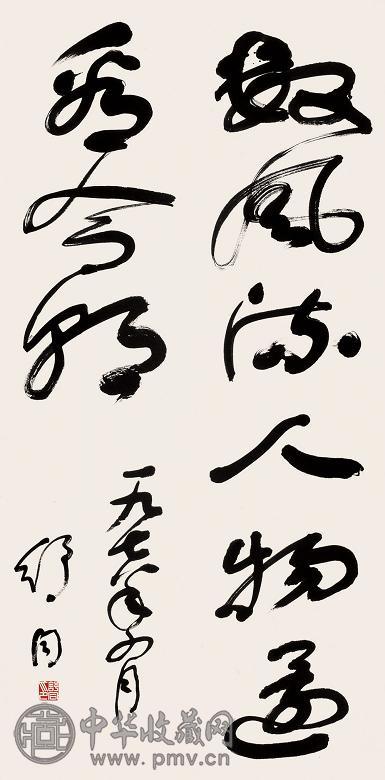 數風流人物還
看今朝
一九七八年四月
舒同
中华收藏网
www.pmv.cn